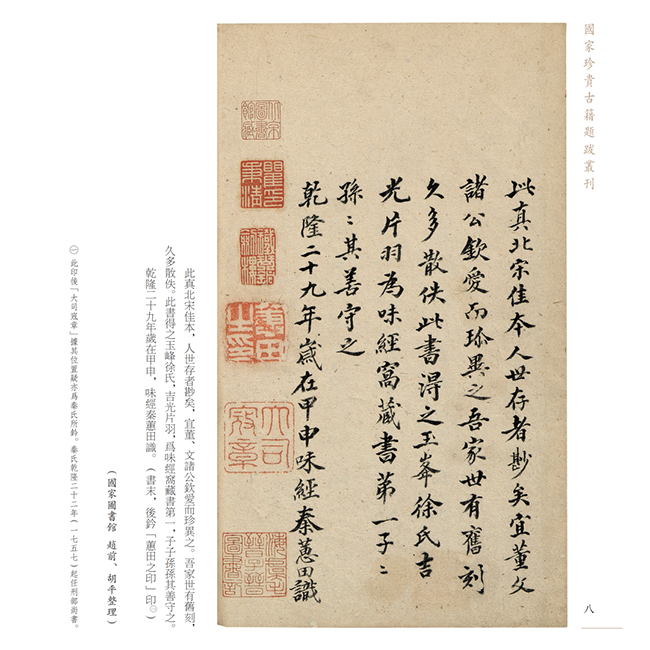 國家珍貴古籍題跋叢刊
八
此真北宋佳本人世存者尠矣宜董文
諸公欽愛而珍異之吾家世有舊刻
久多散佚此書淂之玉峯徐氏吉
光片羽為味經窩藏書第一子〻
孫〻其善守之
乾隆二十九年歲在甲申味經秦蕙田識
蕙田之印
大司寇章
此真北宋佳本，人世存者尠矣，宜董、文諸公欽愛而珍異之。吾家世有舊刻，
久多散佚。此書得之玉峰徐氏，吉光片羽，爲味經窩藏書第一，子子孫孫其善守之。
乾隆二十九年歲在甲申，味經秦蕙田識。（書末，後鈐「蕙田之印」印㊀。）
（國家圖書館 趙前、胡平整理）
㊀ 此印後「大司寇章」據其位置疑亦爲秦氏所鈐。秦氏乾隆二十二年（一七五七）起任刑部尚書。